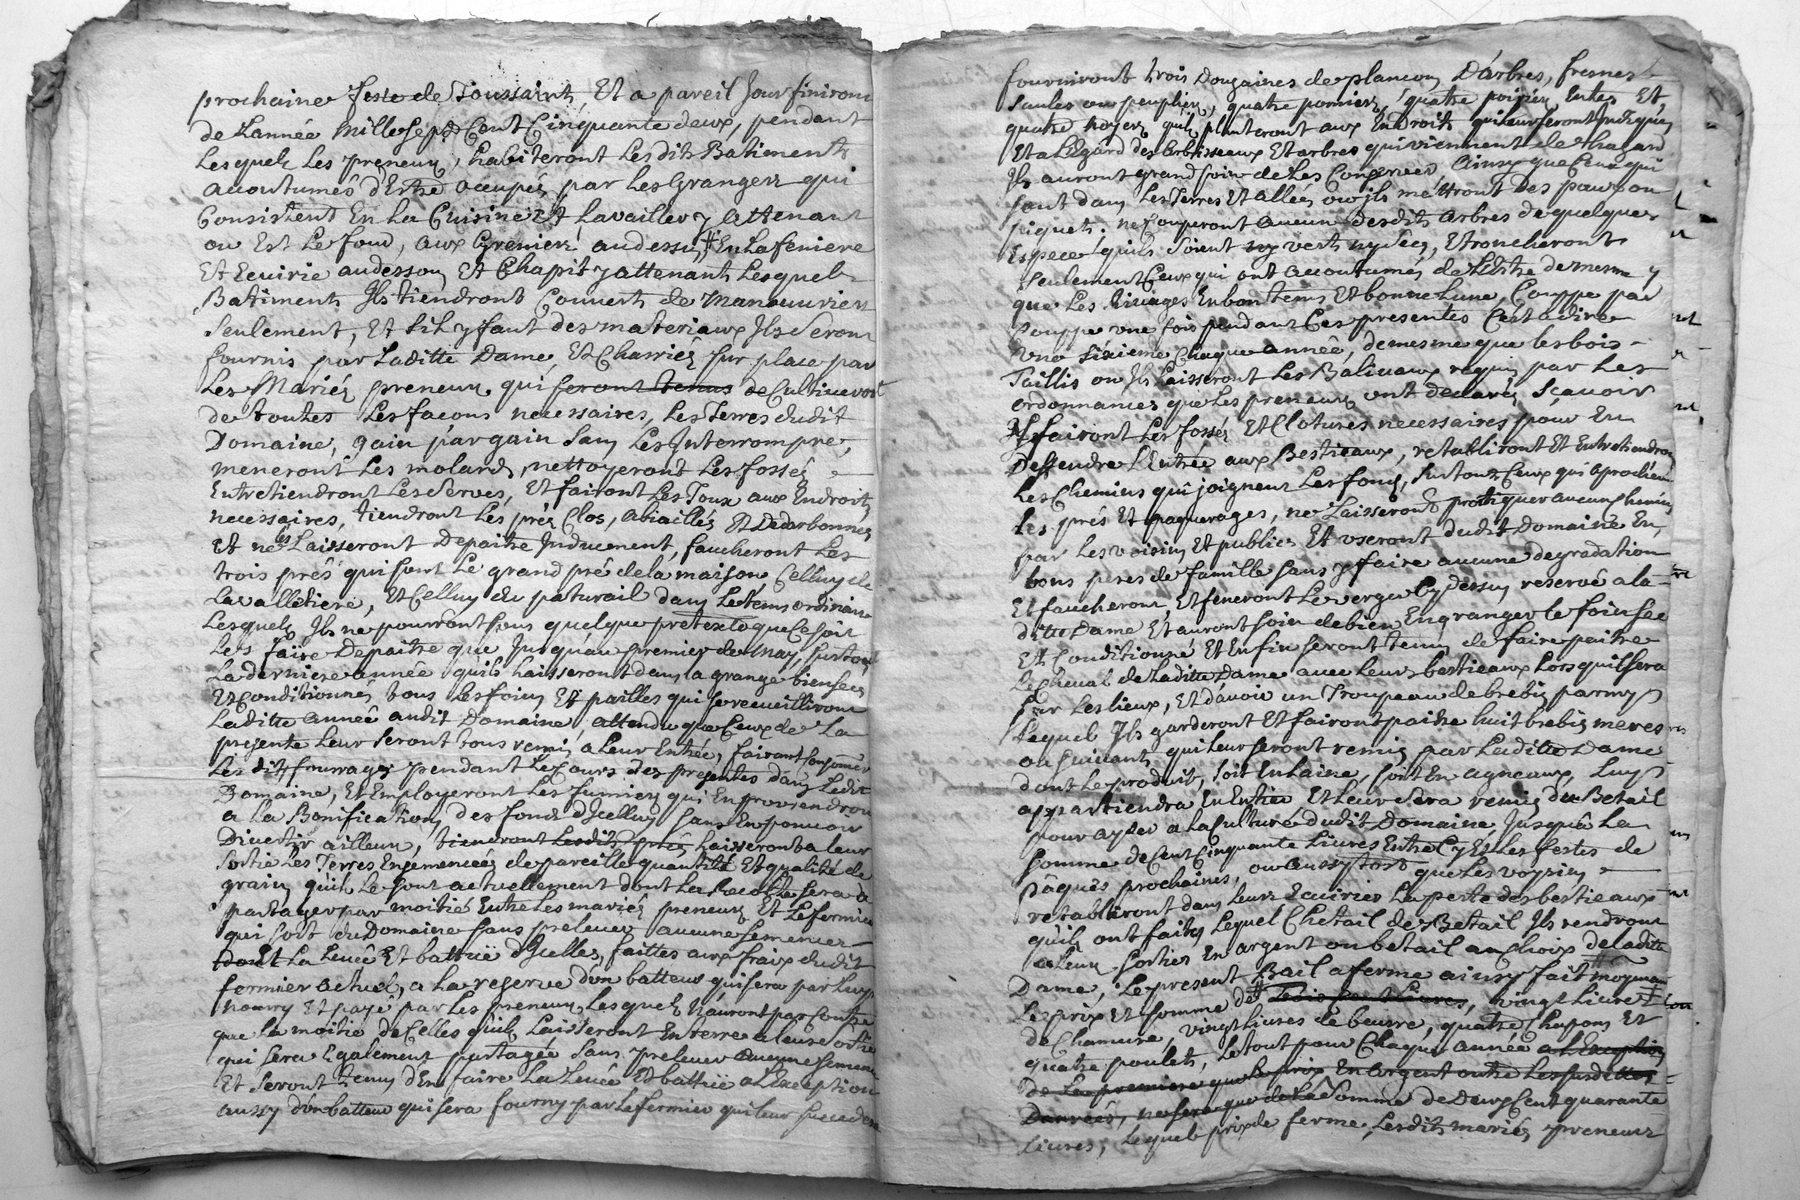 prochaine feste de Toussaint, Et a pareil Jour finiront
de Lannée mille Sept Cent Cinquante deux, pendant
Lesquels Les preneurs, habiteront Lesdits Batiments
acoutumés d'Estre occupés par Les Grangers qui
Consistent En La Cuisine Et Lavailler y attenant
ou Est Le four, aux Greniers audessus, En La feniere
Et Ecuirie audessous Et Chapit y attenant Lesquels
Batiments Ils tiendront Couverts de Manoeuvriers
Seulement, Et Sil y faut des materiaux Ils Seront
fournis par Laditte Dame, Et Charriés sur place par
Les Mariés preneurs qui feront tenus de Cultiveront
de toutes Les facons necessaires, Les Terres dudit
Domaine, gain par gain Sans Les Interrompre,
meneront Les molards, nettoyeront Les fossés
Entretiendront Les Serves, Et fairont Les Toux aux Endroits
necessaires, tiendront Les prés Clos, Et Dedarbonnés
Et ne Laisseront Depaitre Induement, faucheront Les
trois prés qui sont Le grand pré de la maison, Celluy de
La valletiere, Et Celluy du paturail dans Le tems ordinaire
Lesquels Ils ne pourront sous quelque pretexte que Ce soit
Les faire Depaitre que Jusqu'au premier de may, surtout
La derniere année quils Laisseront dans la grange bien secs
Et Conditionnés tous Les foins Et pailles qui se recueilliront
Laditte année audit Domaine, attendu que Ceux de La
presente Leur Seront tous remis a Leur Entrée, fairont Consommer
Les dits fourrages pendant Le Cours des presentes dans Ledit
Domaine, Et Employeront Les fumiers qui En proviendront
a La Bonification des fonds d'Icelluy Sans En pouvoir
Divertir ailleurs, tiendront Lesdits prés Laisseront a Leur
Sortie Les Terres Ensemencées de pareille quantité Et qualité de
grains quils Le sont actuellement dont La Recolte sera a
partager par moitié Entre Les mariés preneurs Et Le fermier
qui sort du Domaine sans prelever aucune semence
dont La Levée Et battüe d'Icelles, faittes aux fraix dudit
fermier actuel, a La reserve d'un batteur qui sera par Luy
nourry Et payé par Les preneurs Lesquels n'auront par Contre
que La moitié de Celles quils Laisseront En terre a Leur Sortie
qui sera Egalement partagée Sans prelever aucune semence
Et Seront tenus d'En faire La Levée Et battüe a L'exception
aussy d'un batteur qui sera fourny par Le fermier qui Leur succedera
fourniront trois Douzaines de plancons D'arbres, fresnes
Saules ou peupliers, quatre pomiers, quatre poiriers Entés Et
quatre noyers quils planteront aux Endroits qui Leur seront Indiqués
Et a L'Egard des arbrisseaux Et arbres qui viennent de thazard
Ils auront grand soin de Les Conserver, Ainsy que Ceux qui
sont dans Les Terres Et allées ou ils mettront des paux ou
piquets. ne Couperont aucun desdits Arbres de quelques
Especes quils Soient ny verts ny Secs, Etroncheront
Seulement Ceux qui ont acoutumés de L'Estre de mesme
que Les Rivages En bon tems Et bonne Lune, Couppe par
Couppe une fois pendant Ces presentes Cest a dire
Une Sixieme Chaque année, de mesme que les bois
Taillis ou Ils Laisseront Les Baliveaux requis par Les
ordonnances que Les preneurs ont declarés Scavoir
Ils fairont Les fossés Et Clotures necessaires pour En
Deffendre L'Entrée aux Bestieaux, retabliront Et Entretiendront
Les Chemins qui joignent Les fonds, surtout Ceux qui aprochent
Les prés Et paquerages, ne Laisseront pratiquer aucuns Chemins
par Les voisins Et publics Et Useront dudit Domaine En
bons peres de famille sans y faire aucune degradation
Et faucheront, Et feneront Le verger Cy dessus reservé a La
ditte Dame Et auront soin de bien Engranger le foin sec
Et Conditionné Et Enfin seront tenus de faire paitre
Le Cheval de Laditte Dame avec Leurs bestieaux Lors quil sera
sur Les lieux, Et d'avoir un Troupeau de brebis parmy
Lequel Ils garderont Et fairont paitre huit brebis meres
ou suivants qui Leur seront remis par Laditte Dame
dont Le produit, soit En Laine, soit En agneaux, Luy
appartiendra En Entier Et Leur Sera remis du Betail
pour ayder a La Culture dudit Domaine Jusquà La
somme de Cent Cinquante Livres Entre Cy Et Les festes de
Pâques prochaines, ou aussytost que Les voysins
retabliront dans Leurs Ecuiries La perte des bestieaux
quils ont faits Lequel Chetail de Betail Ils rendront
a Leur Sorties En argent ou betail au Choix de Laditte
Dame, Le present Bail a ferme ainsy fait moyenant
Le prix Et somme de Trois Cent Livres, vingt Livres
de Chanvre, vingt Livres de beurre, quatre Chapons Et
quatre poulets, Le tout pour Chaque année a L'Exception
de La premiere que Le prix En argent outre Les susdittes
Danrées, ne sera que de La Somme de Deux Cent quarante
Livres, Lequel prix de ferme Lesdits mariés preneurs